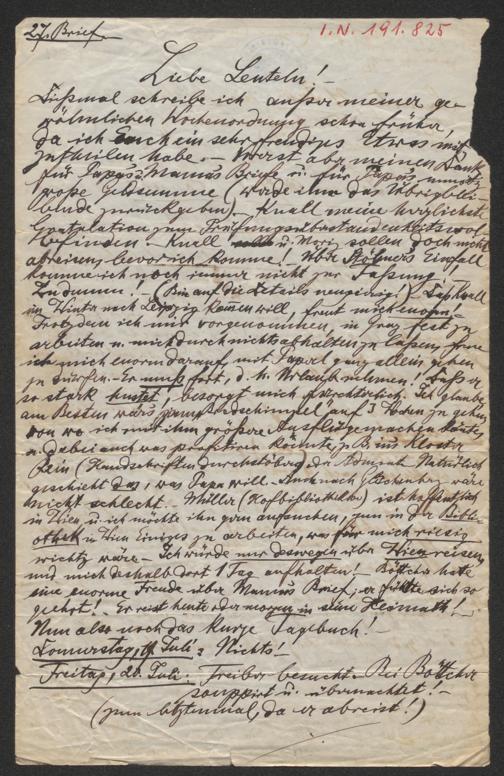 27. Brief.
I.N. 191.825
Liebe Leuteln! –
Dießmal schreibe ich außer meiner ge-
wöhnlichen Wochenordnung schon früher,
da ich Euch ein sehr freudiges Etwas mit-
zutheilen habe. – Zuerst aber meinen Dank
für Papas u. Mamas Briefe u. für Papas
große Geldsumme (werde ihm das Übrigblei-
bende zurückgeben). Knall meine herzlichste
Gratulation zum
befinden. Knall u. Moriz sollen doch nicht
abreisen, bevor ich komme! Über Stöhrers Einfall
komme ich noch immer nicht zur Fassung!
Zu dumm! – (Bin auf die Details neugierig!). Daß Knall
im Winter nach Leipzig kommen will, freut mich enorm. –
Trotzdem ich mir vorgenommen, in Graz fest zu
arbeiten u. mich durch nichts abhalten zu lassen, freue
ich mich enorm darauf, mit Papa ganz allein gehen
zu dürfen. Er muß fort, d. h. Urlaub nehmen! Daß er
so stark hustet, besorgt mich fürchterlich. Ich glaube,
am Besten wärs, zum auf 3 Wochen zu gehen,
von wo ich mit ihm größere Ausflüge machen könnte,
u. dabei auch was profitiren könnte, z. B. ins Kloster
Rein (Handschriften durchstöbern), da Admont. Natürlich
geschieht das, was Papa will. – Auch nach wäre
nicht schlecht. – Müller (Hofbibliothek) ist hoffentlich
in Wien u. ich möchte ihn gern aufsuchen, um in der Biblio-
othek in Wien Einiges zu arbeiten, was für mich riesig
wichtig wäre. – Ich würde nur deswegen über Wien reisen,
und mich deshalb dort 1 Tag aufhalten! – Böttcher hatte
eine enorme Freude über Mamas Brief, er fühlte sich so
geehrt! – Er reist heute oder morgen in seine Heimath! –
Nun also noch das kurze Tagebuch! –
Donnerstag, Juli: Nichts! –
Freitag, 20. Juli. Freiber besucht. Bei Böttcher
souppirt u. übernachtet! –
(zum letztenmal, da er abreist!)